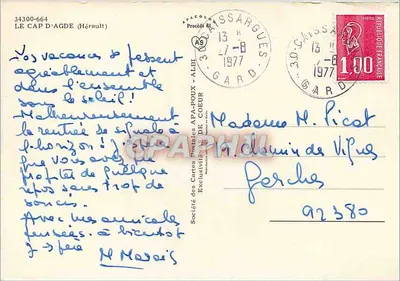 34300-664
LE CAP D'AGDE (Hérault)
APA-POUX
Procédé
AS
30-CAISSARGUES
13 H
17-8
1977
GARD
30-CAISSARGUES
13 H
17-8
1977
GARD
1,00
Vos vacances se passent
agréablement et
dans l'ensemble
sous le soleil!
Malheureusement
la rentrée se signale à
l'horizon! J'espère
que vous avez
profité de quelque
repos sans trop de
soucis.
Avec mes amicales
pensées. à bientôt
j'espère
M. Marais
Société des Cartes Postales APA-POUX - ALBI
Exclusivité DE COEUR
Madame M. Picot
Chemin de Vignes
Garches
92380